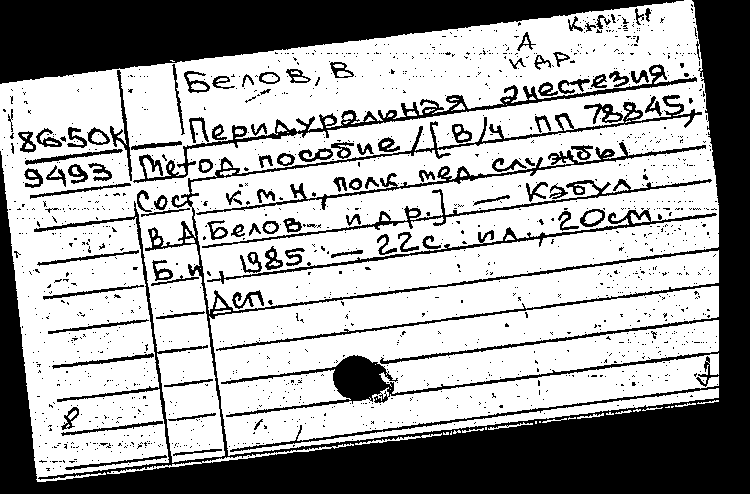 к.м.н.
Белов, В А и др.
86-50к Перидуральная анестезия :
9493 Метод. пособие / [ В/ч ПП 78845;
Сост. к.м.н., полк. мед. службы
В.А. Белов и др.]. — Кабул :
Б.и., 1985. — 22с. : ил.; 20см.
Дсп.
8